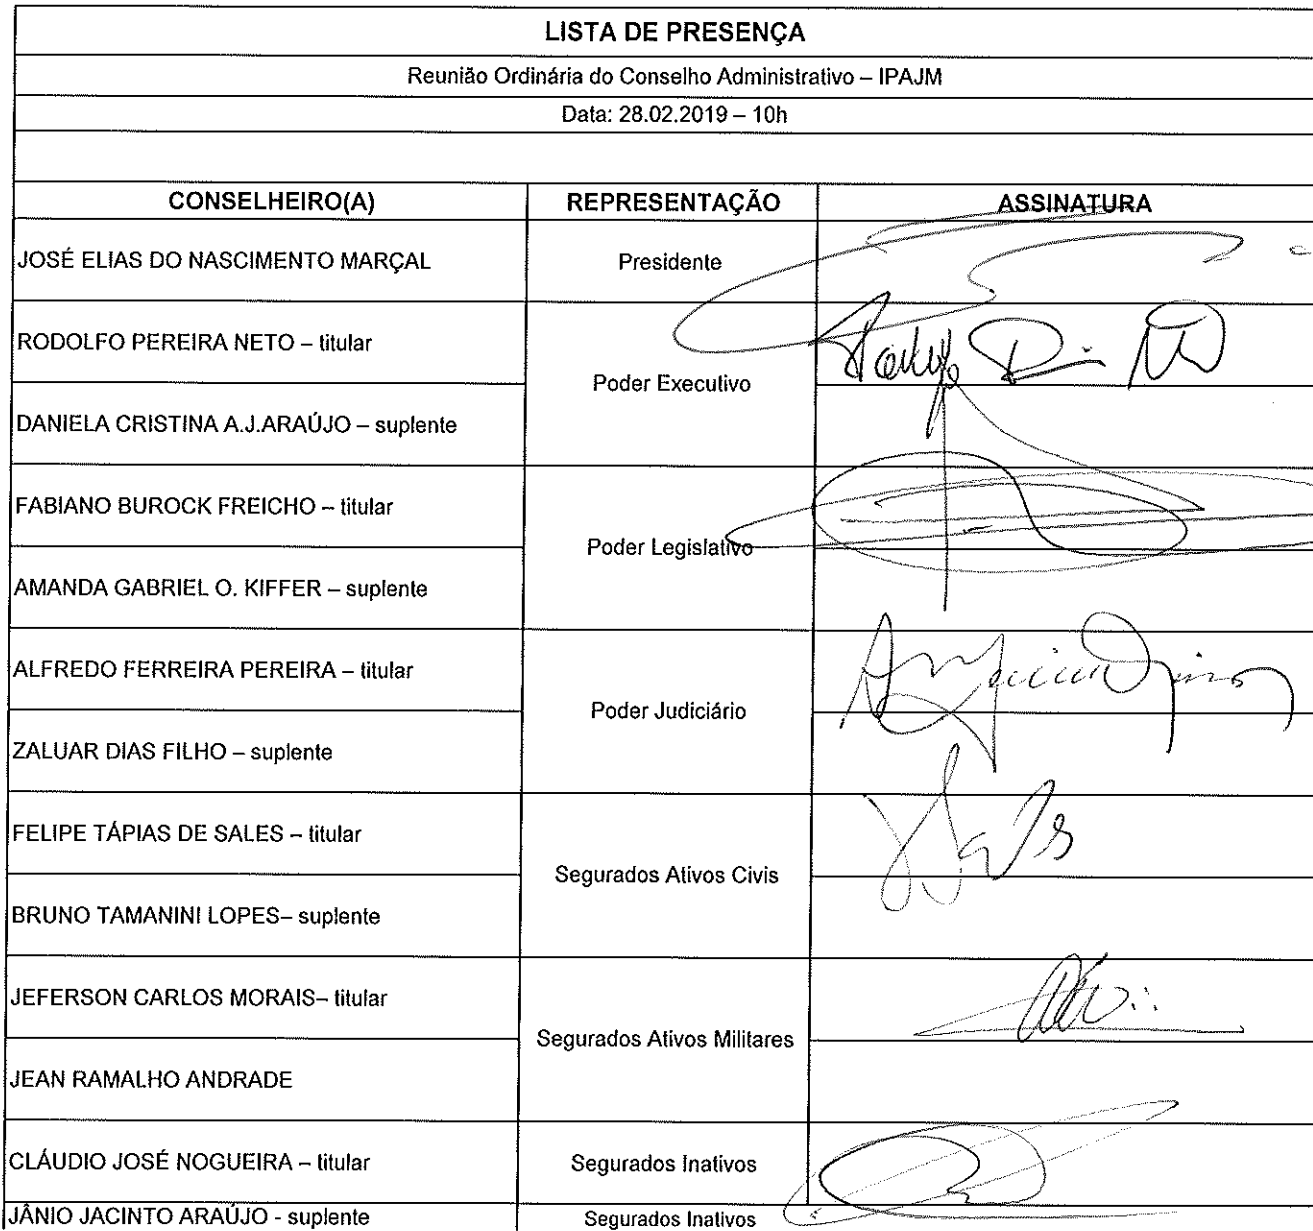 LISTA DE PRESENÇA
Reunião Ordinária do Conselho Administrativo – IPAJM
Data: 28.02.2019 – 10h
CONSELHEIRO(A) REPRESENTAÇÃO ASSINATURA
JOSÉ ELIAS DO NASCIMENTO MARÇAL Presidente
RODOLFO PEREIRA NETO – titular
Poder Executivo
DANIELA CRISTINA A.J.ARAÚJO – suplente
FABIANO BUROCK FREICHO – titular
Poder Legislativo
AMANDA GABRIEL O. KIFFER – suplente
ALFREDO FERREIRA PEREIRA – titular
Poder Judiciário
ZALUAR DIAS FILHO – suplente
FELIPE TÁPIAS DE SALES – titular
Segurados Ativos Civis
BRUNO TAMANINI LOPES– suplente
JEFERSON CARLOS MORAIS– titular
Segurados Ativos Militares
JEAN RAMALHO ANDRADE
CLÁUDIO JOSÉ NOGUEIRA – titular Segurados Inativos
JÂNIO JACINTO ARAÚJO - suplente Segurados Inativos